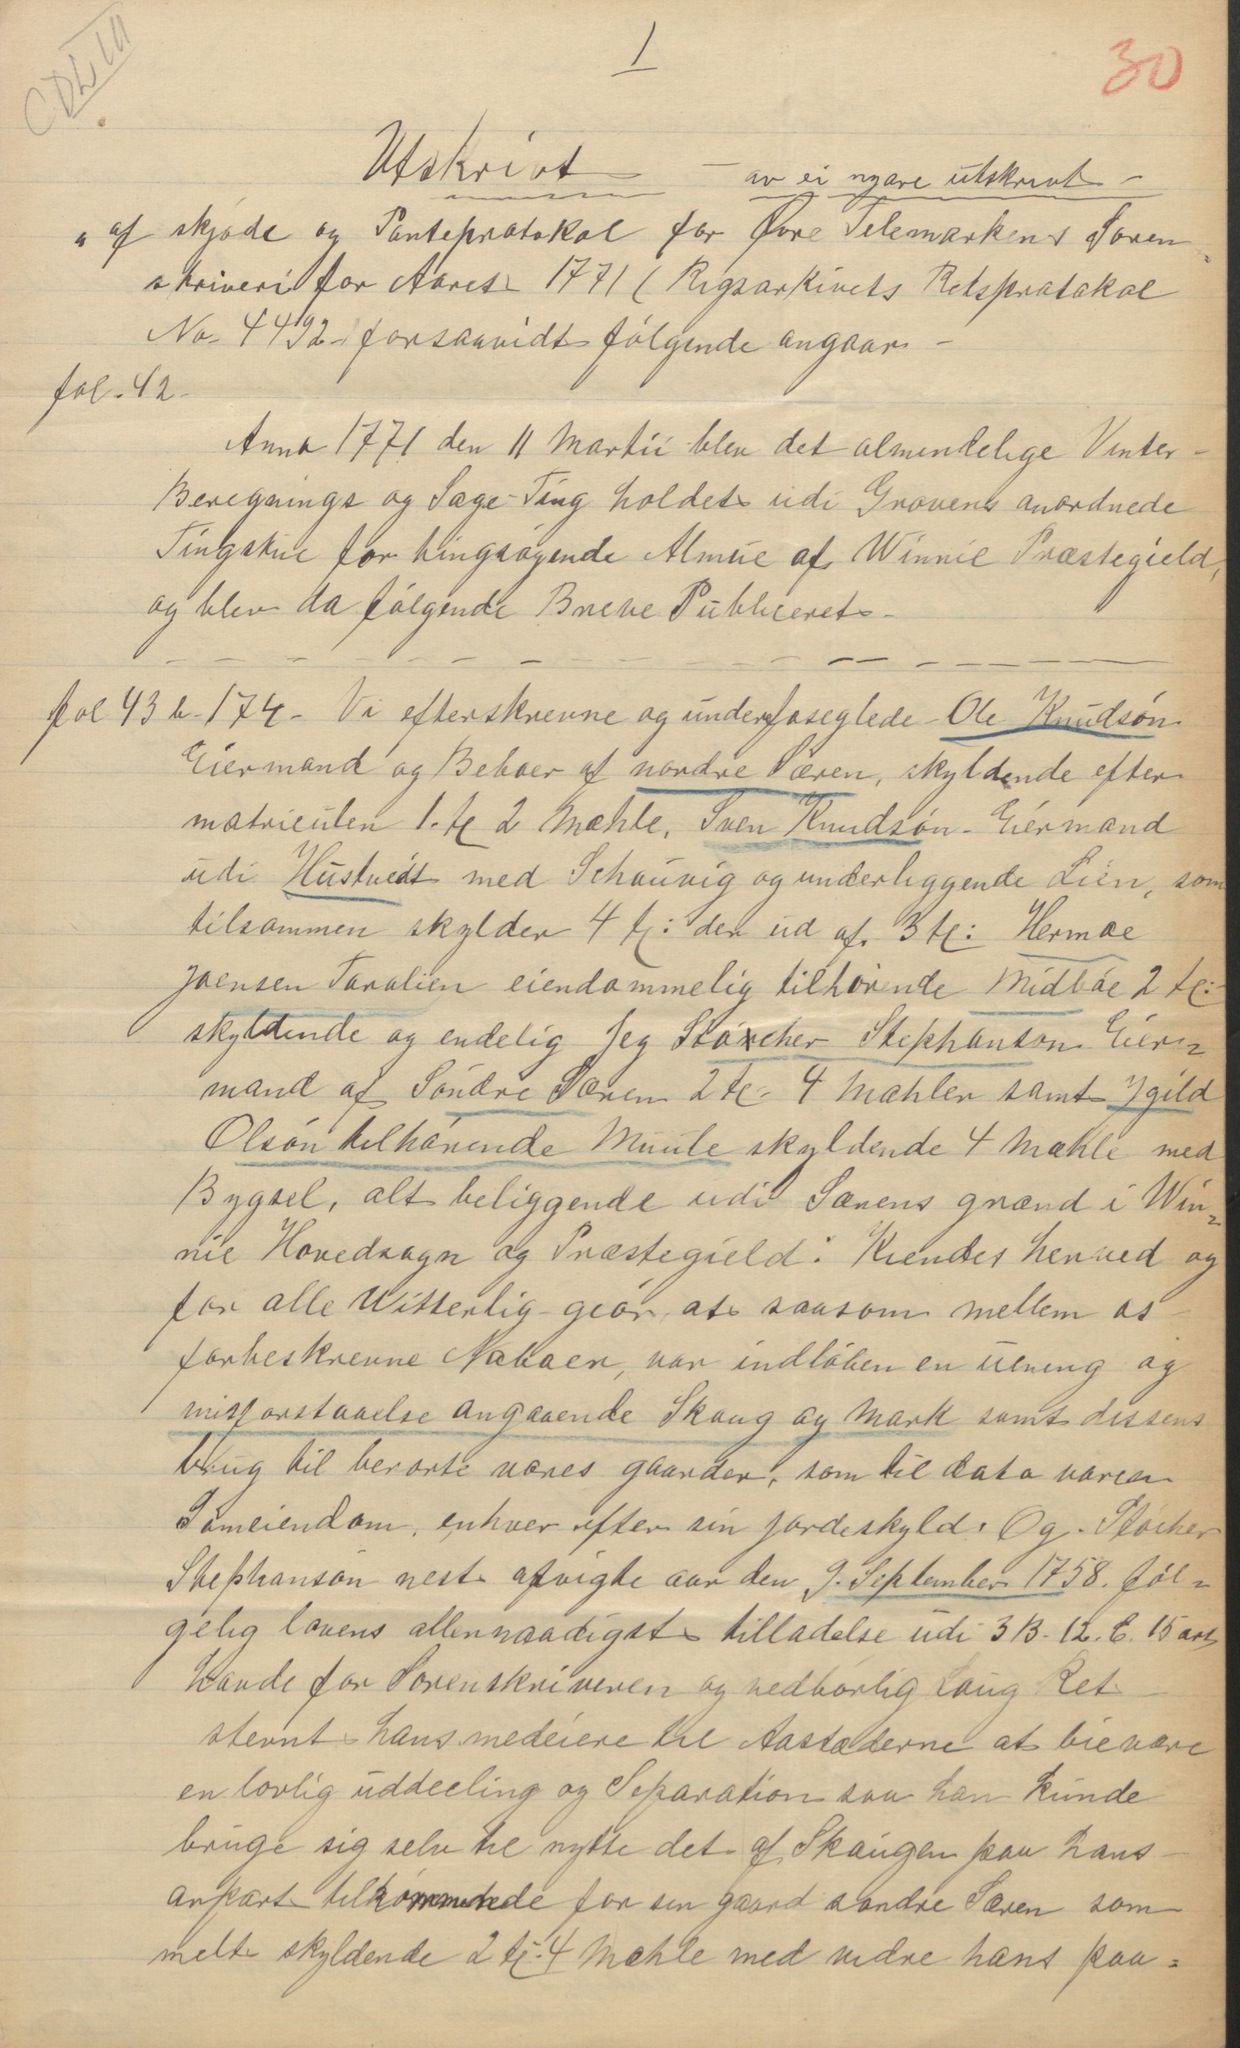 1
30
Utskrivt – av ei nyare utskrivt –
„ af skjøde og Panteprotokol for Øvre Telemarkens Soren
skriveri for Aaret 1771 (Rigsarkivets Retsprotokol
No. 4492 – forsaavidt følgende angaar –
fol. 42.
Anno 1771 den 11 Martii blev det almindelige Vinter-
Beregnings og Sage-Ting holdet udi Gravens anordnede
Tingstue for tingsøgende Almue af Winnie Præstegield,
og blev da følgende Breve Publiceret.
fol 43 b – 174 – Vi efterskrevne og underforseglede Ole Knudsøn
Eiermand og Beboer af nordre Særen, skyldende efter
matriculen 1. tr 2 Mæhle, Sven Knudsøn – Eiermand
udi Hustvedt med Schauvig og underliggende Lien, som
tilsammen skylder 4 tr: der ud af 3 tr: Hermoe
Joensen Taralien eiendommelig tilhørende Midbøe 2 tr:
skyldende og endelig Jeg Støxcher Stephanson Eier=
mand af Søndre Særen 2 tr. 4 Mæhler samt Ygild
Olsøn tilhørende Muule skyldende 4 Mæhle med
Bygsel, alt beliggende udi Særens grænd i Win=
nie Hovedsogn og Præstegield: Kiendes herved og
for alle Witterlig giør, at saasom mellem os
forbeskrevne Naboer, var indløben en uening og
misforstaaelse angaaende Skoug og Mark samt dissens
brug til berørte vores gaarder, som til dato varen
Sameiendom, enhver efter sin jordeskyld. Og Støcher
Stephansøn nest afvigte aar den 9. September 1758. føl=
gelig lovens allernaadigste tilladelse udi 3 B. 12. C. 15 art
havde for Sorenskriveren og vedbørlig Laug Ret
stevnt hans medeiere til Aastæderne at bievære
en lovlig uddeeling og Separation saa han kunde
bruge sig selv til nytte det af Skaugen paa hans
anpart tilkommende for sin gaard søndre Særen som
melt skyldende 2 tr. 4 Mæhle med vidre hans paa=